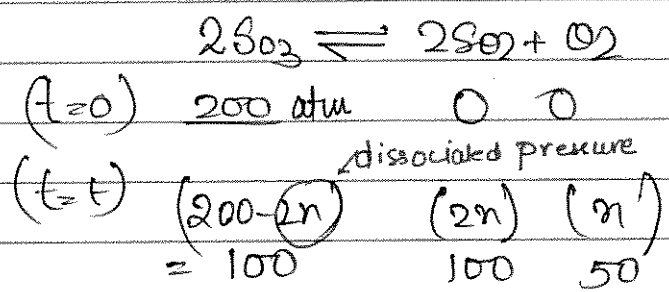 2SO3 ⇌ 2SO2 + O2
(t=0) 200 atm 0 0
dissociated pressure
(t=t) (200-2x) (2x) (x)
= 100 100 50